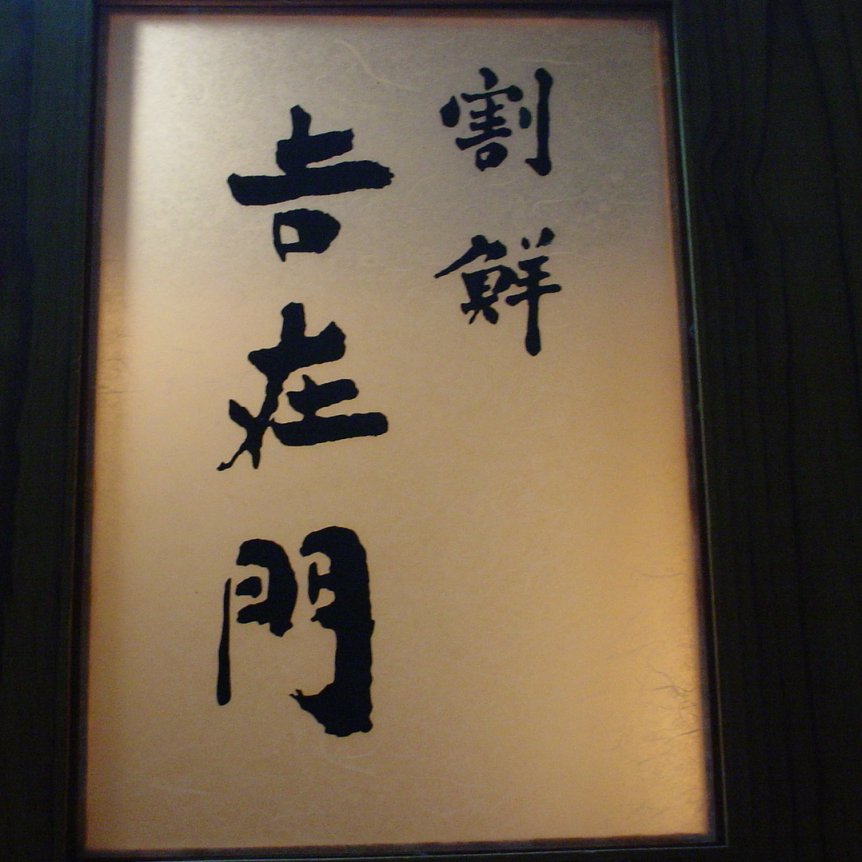 割鮮
吉在門